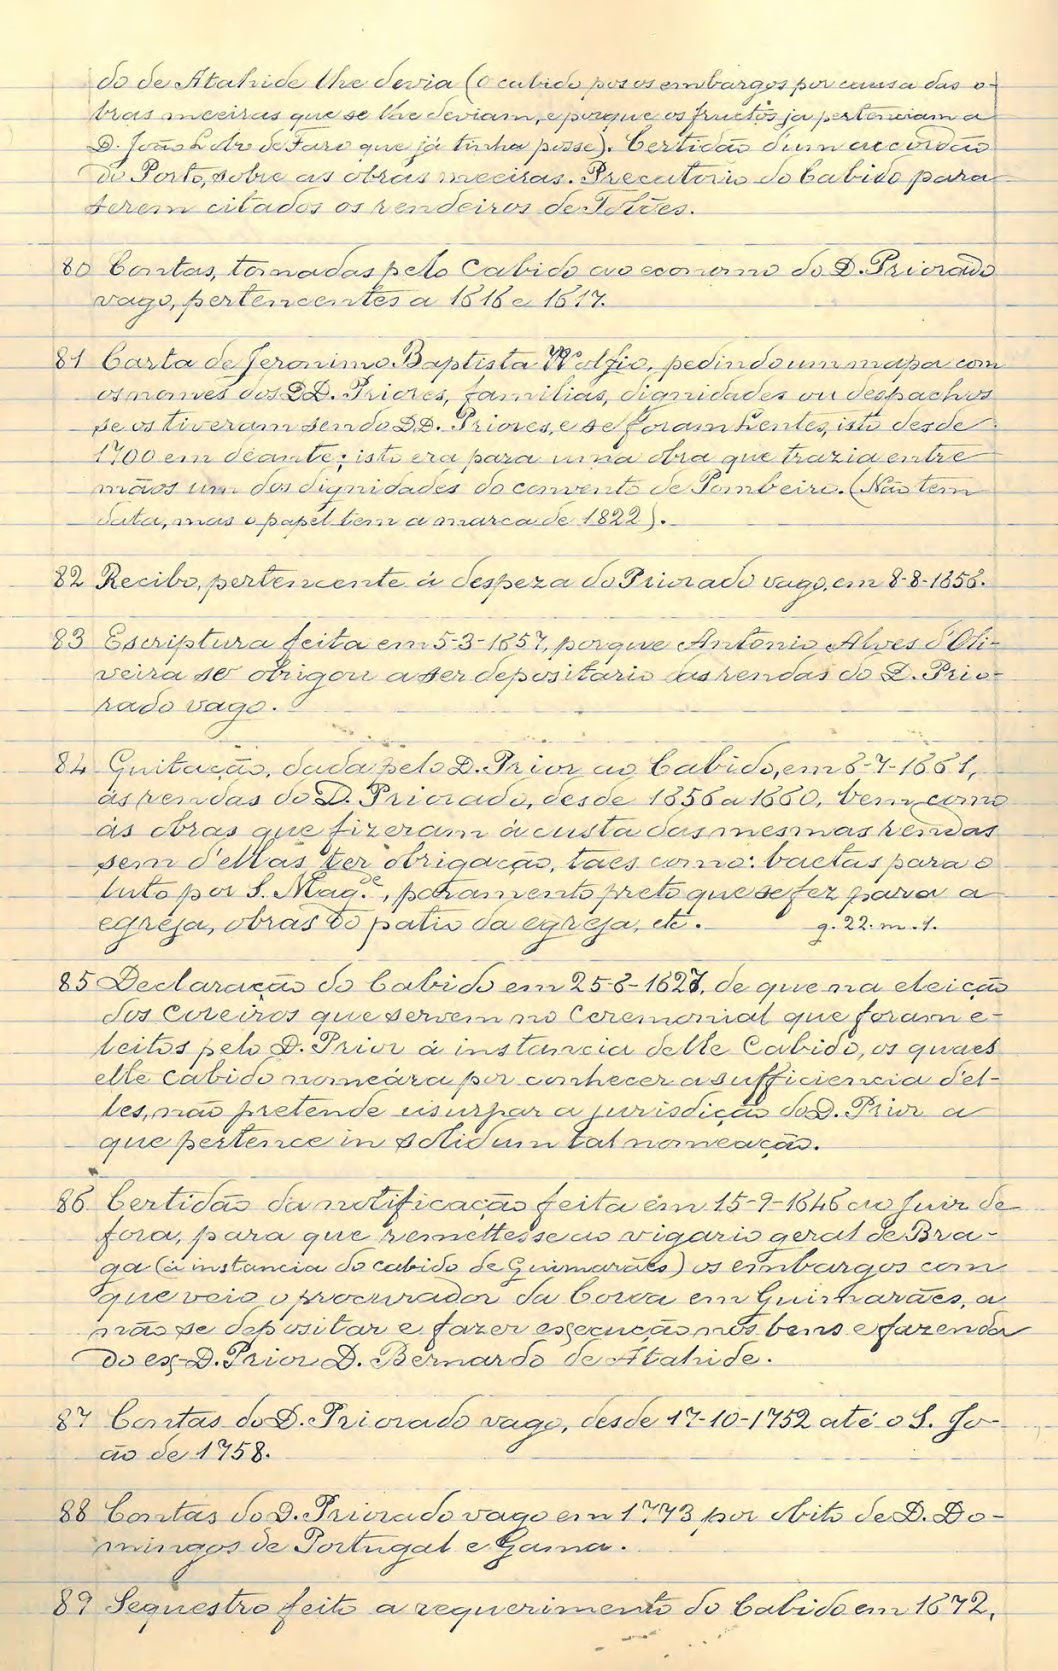 do de Atahide lhe devia (o cabido pos os embargos por causa das o-
bras meeiras que se lhe deviam, e porque os fructos ja pertenciam a
D. João Lobo de Faro que já tinha posse). Certidão d'um accordão
do Porto, sobre as obras meeiras. Precatorio do Cabido para
serem citados os rendeiros de Tolões.
80 Contas, tomadas pelo Cabido ao economo do D. Priorado
vago, pertencentes a 1616 e 1617.
81 Carta de Jeronimo Baptista Wolfio, pedindo um mapa com
os nomes dos DD. Priores, familias, dignidades ou despachos
se os tiveram sendo DD. Priores, e se foram Lentes, isto desde
1700 em déante; isto era para uma obra que trazia entre
mãos um dos dignidades do convento de Pombeiro. (Não tem
data, mas o papel tem a marca de 1822).
82 Recibo, pertencente á despeza do Priorado vago, em 8-8-1656.
83 Escriptura feita em 5-3-1657, porque Antonio Alves d'Oli-
veira se obrigou a ser depositario das rendas do D. Prio-
rado vago.
84 Quitação, dada pelo D. Prior ao Cabido, em 6-7-1661,
ás rendas do D. Priorado, desde 1656 a 1660, bem como
ás obras que fizeram á custa das mesmas rendas
sem d'ellas ter obrigação, taes como: baetas para o
luto por S. Mag.de, paramento preto que se fez para a
egreja, obras do patio da egreja, etc. g. 22. m. 1.
85 Declaração do Cabido em 25-6-1627, de que na eleição
dos Coreiros que servem no Ceremonial que foram e-
leitos pelo D. Prior á instancia delle Cabido, os quaes
elle Cabido nomeára por conhecer a sufficiencia d'el-
les, não pretende usurpar a jurisdição do D. Prior a
que pertence in solidum tal nomeação.
86 Certidão da notificação feita em 15-9-1646 ao Juiz de
fora, para que remettesse ao vigario geral de Bra-
ga (á instancia do cabido de Guimarães) os embargos com
que veio o procurador da Coroa em Guimarães, a
não se depositar e fazer execução nos bens e fazenda
do ex-D. Prior D. Bernardo de Atahide.
87 Contas do D. Priorado vago, desde 17-10-1752 até o S. Jo-
ão de 1758.
88 Contas do D. Priorado vago em 1773, por obito de D. Do-
mingos de Portugal e Gama.
89 Sequestro feito a requerimento do Cabido em 1672,